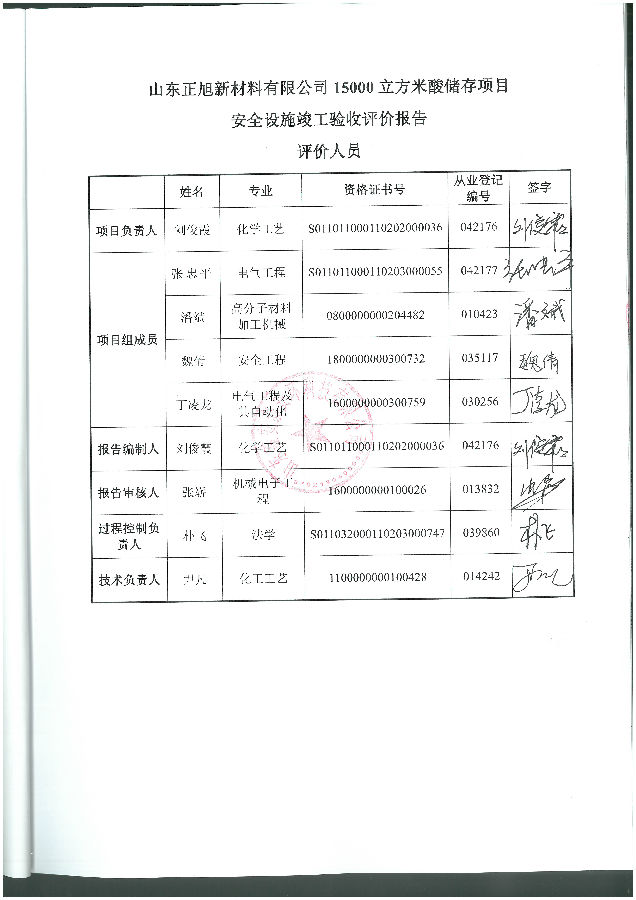 山东正旭新材料有限公司 15000 立方米酸储存项目
安全设施竣工验收评价报告
评价人员
姓名 专业 资格证书号 从业登记编号 签字
项目负责人 刘俊霞 化学工艺 S011011000110202000036 042176
项目组成员
张忠平 电气工程 S011011000110203000055 042177
潘斌 高分子材料加工机械 0800000000204482 010423
魏倩 安全工程 1800000000300732 035117 魏倩
丁凌龙 电气工程及其自动化 1600000000300759 030256
报告编制人 刘俊霞 化学工艺 S011011000110202000036 042176
报告审核人 机械电子工程 1600000000100026 013832
过程控制负责人 朴飞 法学 S011032000110203000747 039860 朴飞
技术负责人 化工工艺 1100000000100428 014242